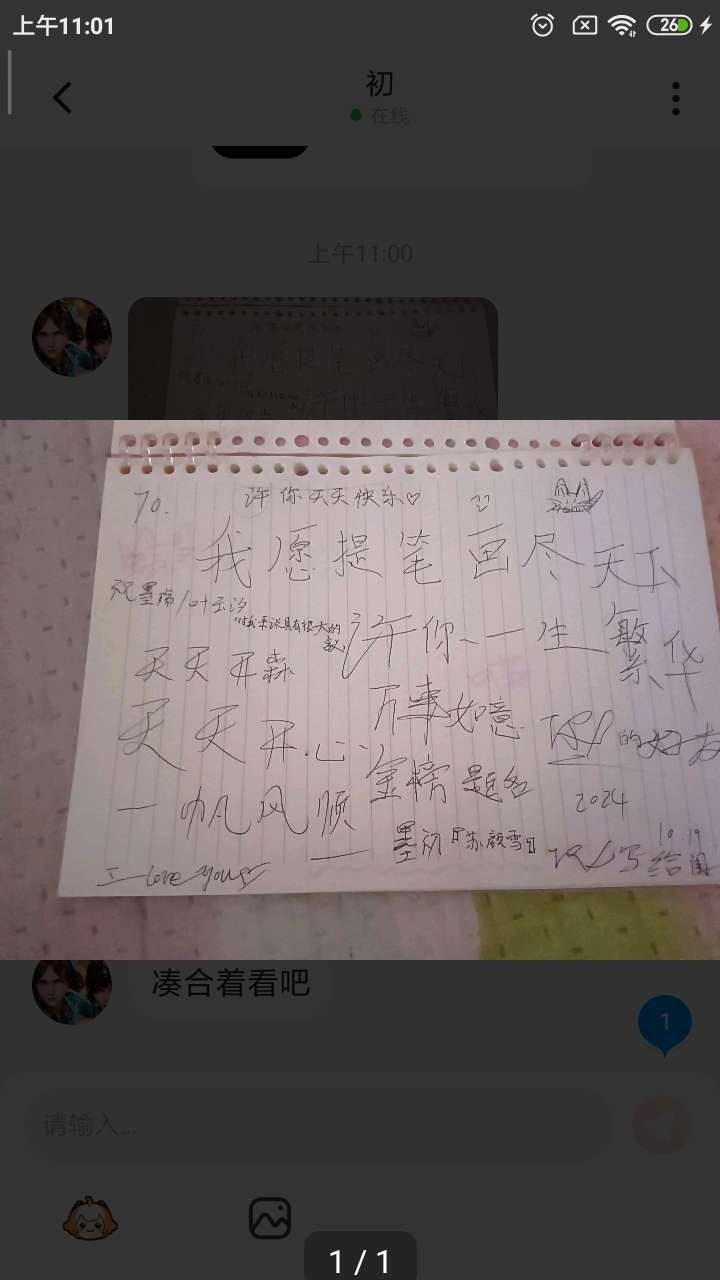 上午11:01
26
初
在线
上午11:00
To.
许你天天快乐♡
我愿提笔画尽天下
祝墨
/叶云汐
许你、一生繁华
天天开森
天天开心、
万事如意
的好友
一帆风顺
金榜题名
2024
10.19
墨初『苏颜雪』
写给闺
I love you
凑合着看吧
1
请输入...
1 / 1